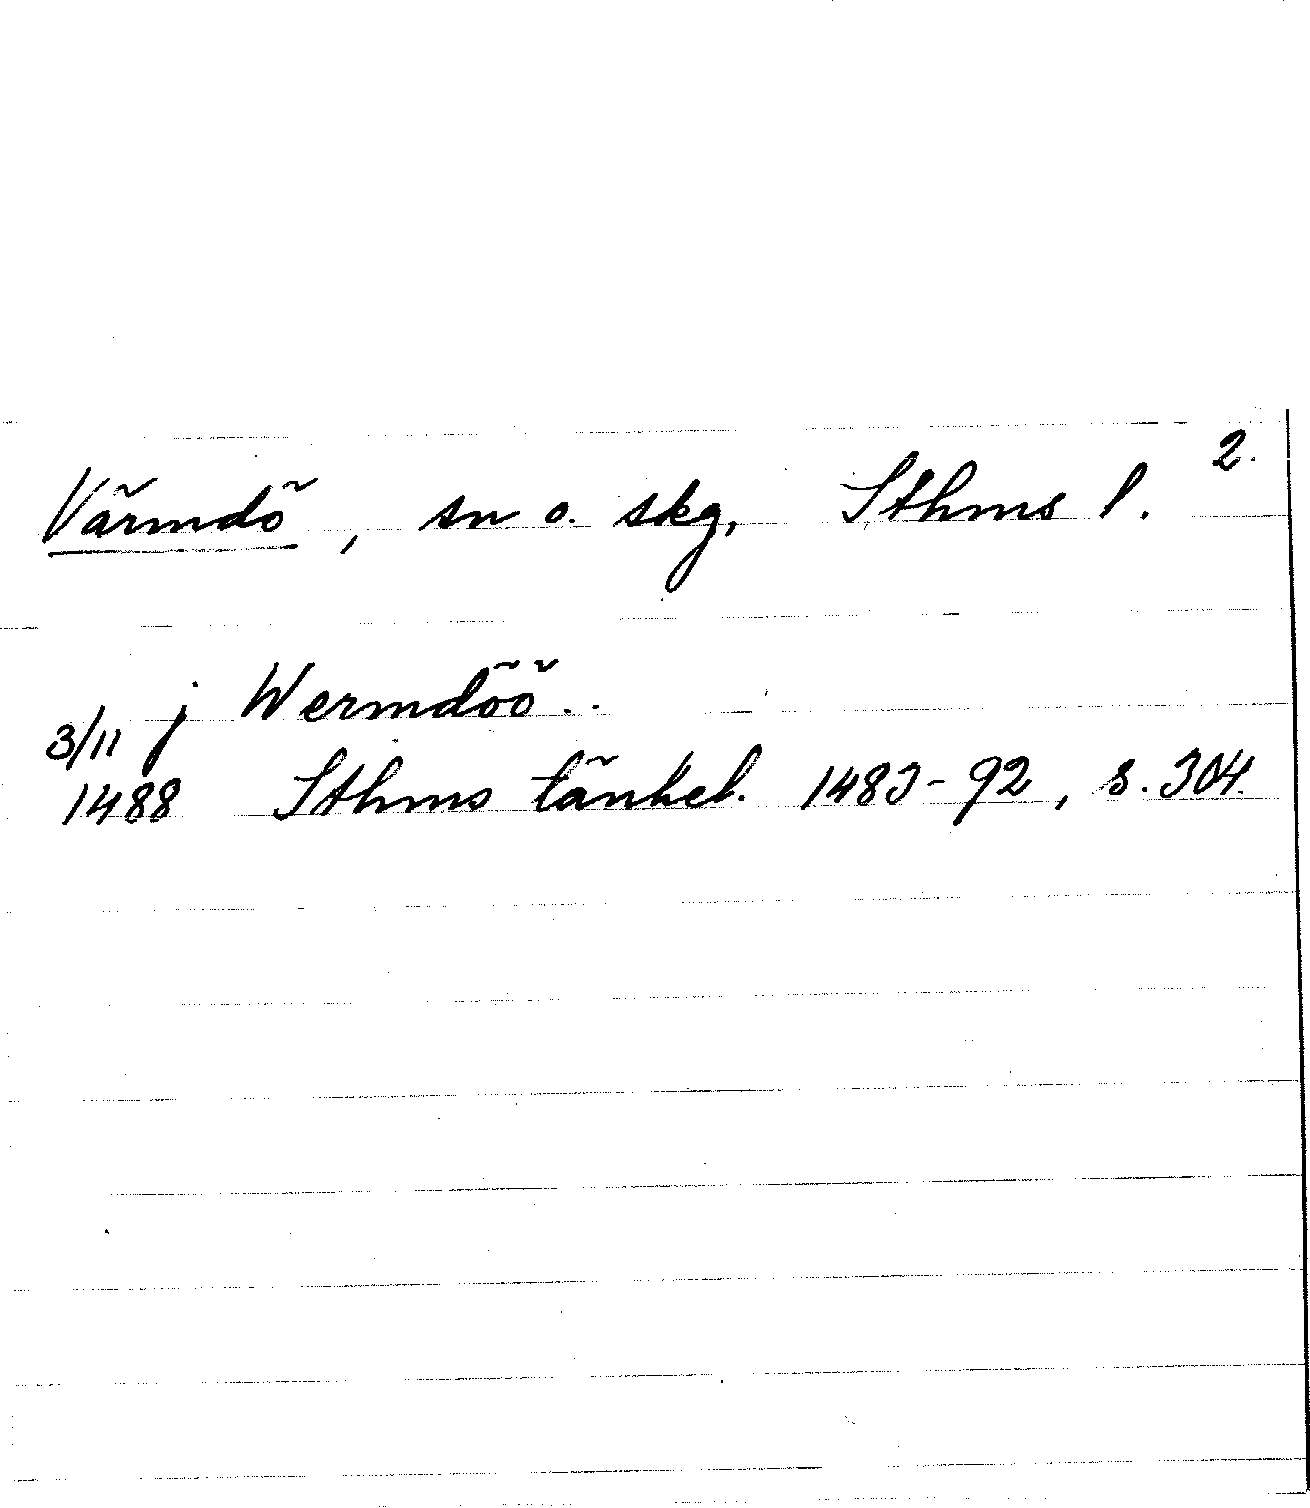 2.
Värmdö, sn o. skg, Sthms l.
j Wermdöö..
3/11
1488 Sthms tänkeb. 1483-92, s. 304.